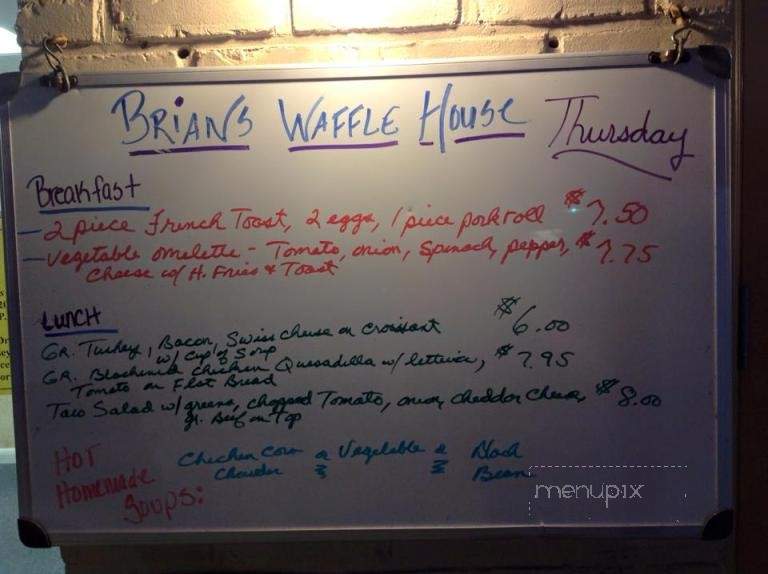 BRIAN'S WAFFLE HOUSE Thursday
Breakfast
- 2 piece French Toast, 2 eggs, 1 piece pork roll $7.50
- Vegetable omelette - Tomato, onion, Spinach, pepper, $7.75
Cheese w/ H. Fries & Toast
LUNCH
GR. Turkey, Bacon, Swiss cheese on croissant $6.00
w/ Cup of Soup
GR. Blackened Chicken Quesadilla w/ lettuce, $7.95
Tomato on Flat Bread
Taco Salad w/ greens, chopped Tomato, onion, cheddar cheese, $8.00
gr. Beef on Top
HOT Homemade Soups:
Chicken Corn Chowder & Vegetable & Black Bean
menupix